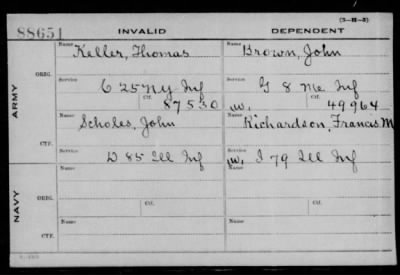 (3-H-3)
88651 INVALID DEPENDENT
Name Keller, Thomas Name Brown, John
ORIG.
Service C 25 NY Inf Service G 8 Me Inf
Ctf. 87530 W. Ctf. 49964
ARMY
Name Scholes, John Name Richardson, Francis M
CTF.
Service D 85 Ill Inf W. Service I 79 Ill Inf
Name Name
ORIG.
Service Ctf. Service Ctf.
NAVY
Name Name
CTF.
Service Service